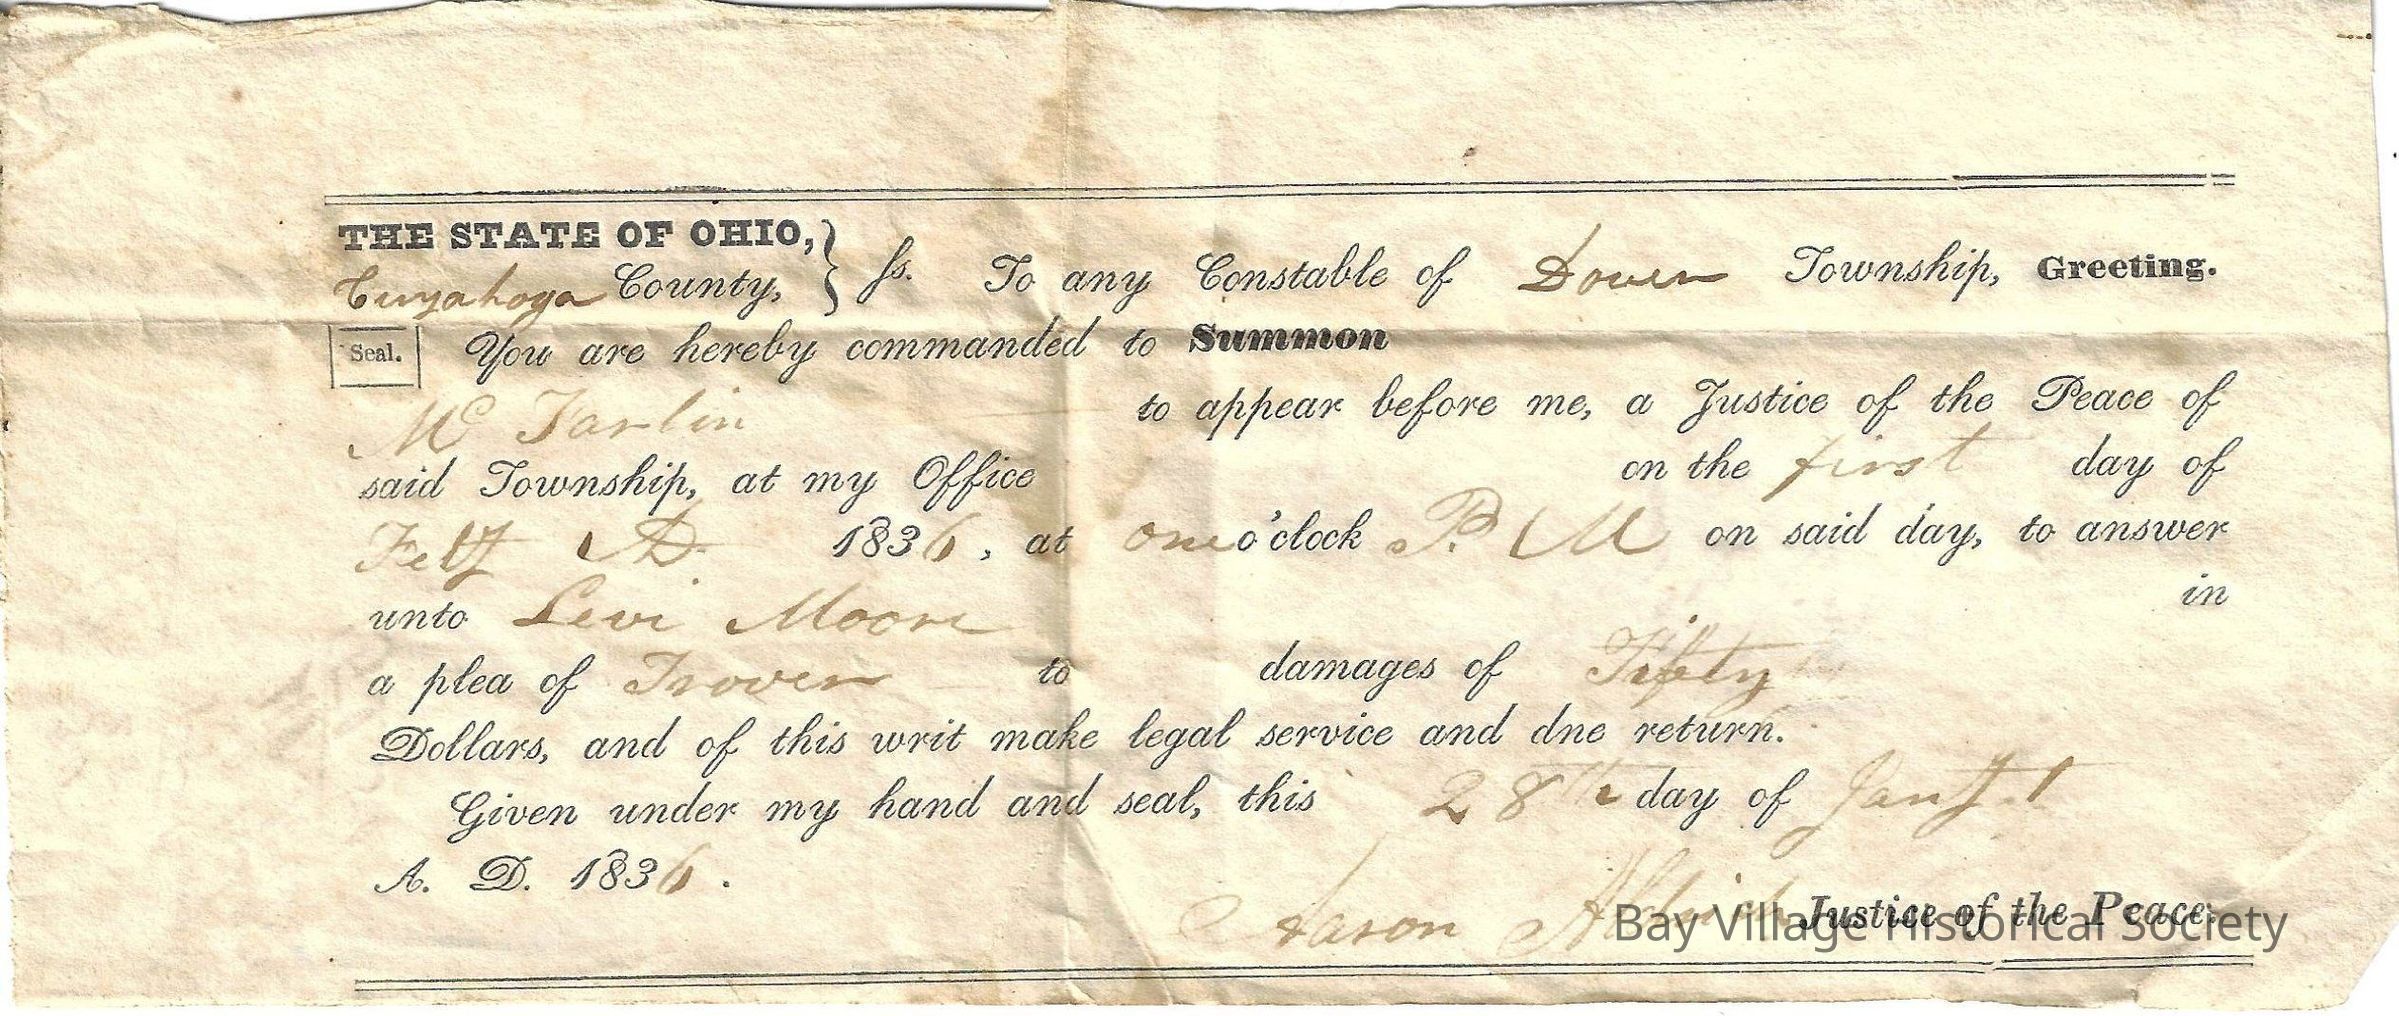 THE STATE OF OHIO,
Cuyahoga County, } ss. To any Constable of Dover Township, Greeting.
Seal. You are hereby commanded to Summon
Mc Farlin to appear before me, a Justice of the Peace of
said Township, at my Office on the first day of
Feby AD 1836, at one o'clock P. M on said day, to answer
unto Levi Moore in
a plea of Trover to damages of Fifty
Dollars, and of this writ make legal service and dne return.
Given under my hand and seal, this 28th day of Jany
A. D. 1836.
Aaron Aldrich Justice of the Peace.
Bay Village Historical Society